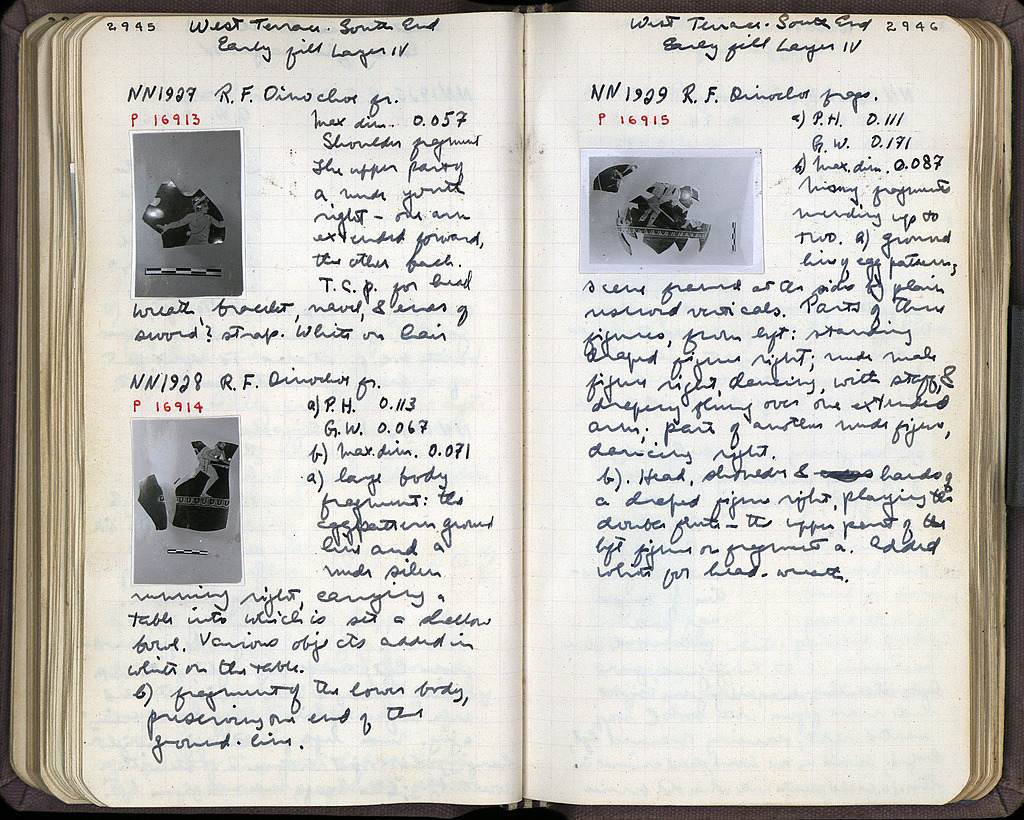 2945 West Terrace. South End
Early fill Layer IV
NN1927 R.F. Oinochoe fr.
P 16913
Max dim. 0.057
Shoulder fragment
The upper part of
a nude youth
right – one arm
extended forward,
the other back.
T.C.p. for head
wreath, bracelet, navel, & ends of
sword? strap. White on hair
NN1928 R.F. Oinochoe fr.
P 16914
a) P.H. 0.113
G.W. 0.067
b) Max. dim. 0.071
a) large body
fragment: the
egg pattern ground
line and a
nude silen
running right, carrying a
table into which is set a shallow
bowl. Various objects added in
white on the table.
b) fragment of the lower body,
preserving one end of the
ground-line.
West Terrace. South End 2946
Early fill Layer IV
NN1929 R.F. Oinochoe frags.
P 16915
a) P.H. 0.111
G.W. 0.171
b) Max. dim. 0.087
Many fragments
mending up to
two. a) ground
line, egg pattern;
scene framed at the side by plain
reserved verticals. Parts of three
figures, from left: standing
draped figure right; nude male
figure right, dancing, with staff, &
drapery flung over one extended
arm; part of another nude figure,
dancing right.
b). Head, shoulders & hands of
a draped figure right, playing the
double flute – the upper part of the
left figure on fragment a. Added
white for head-wreath.